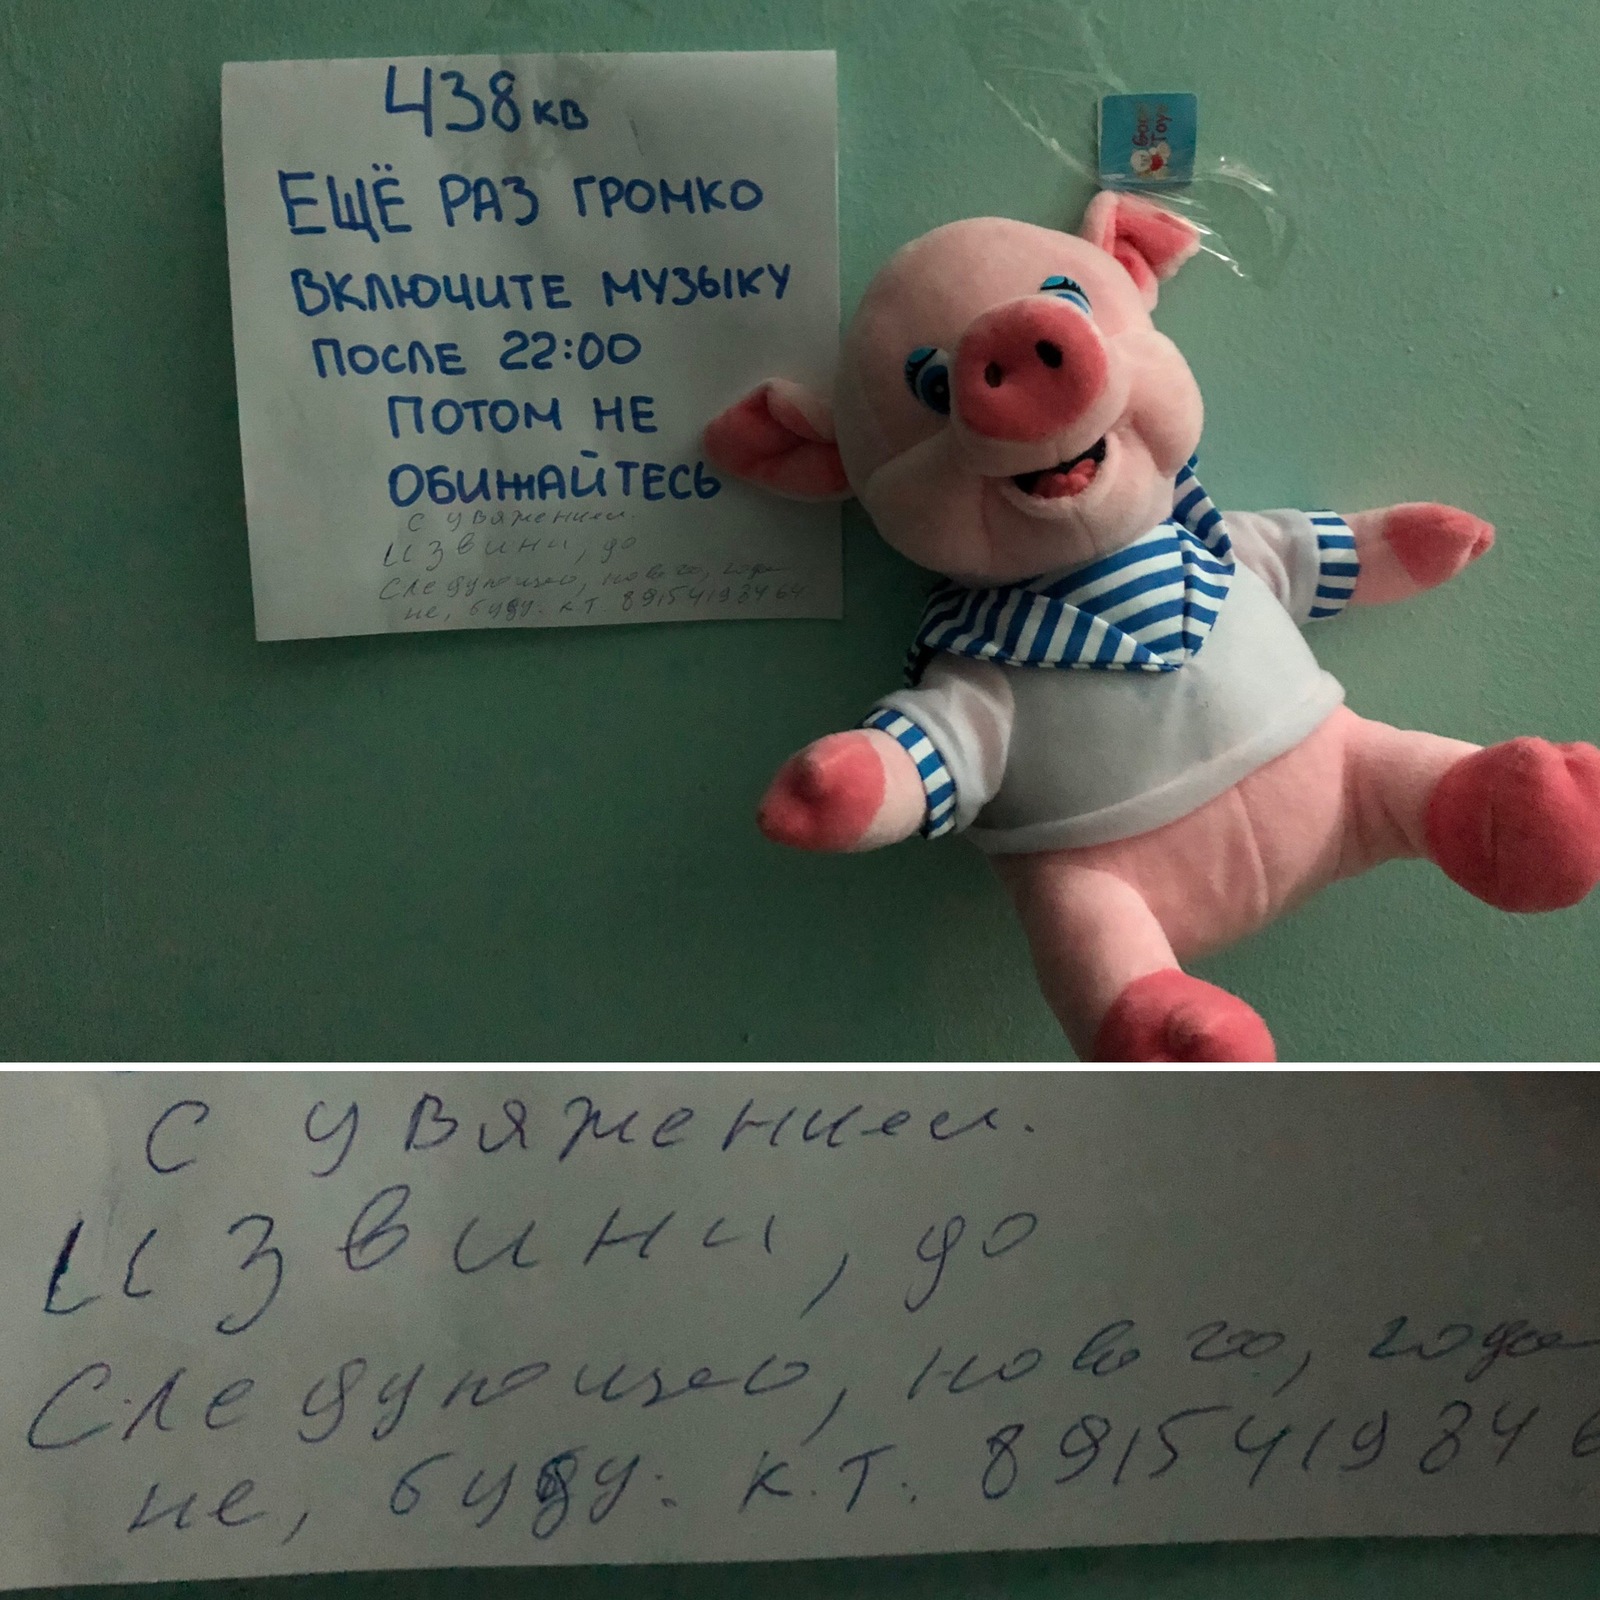 438 кв
ЕЩЁ РАЗ ГРОМКО
ВКЛЮЧИТЕ МУЗЫКУ
ПОСЛЕ 22:00
ПОТОМ НЕ
ОБИЖАЙТЕСЬ
с уважением.
Извини, до
Следующего, нового, года
не, буду. к.т. 89154198464
Good
Toys
с уважением.
Извини, до
Следующего, нового, года
не, буду. к.т. 8915419846